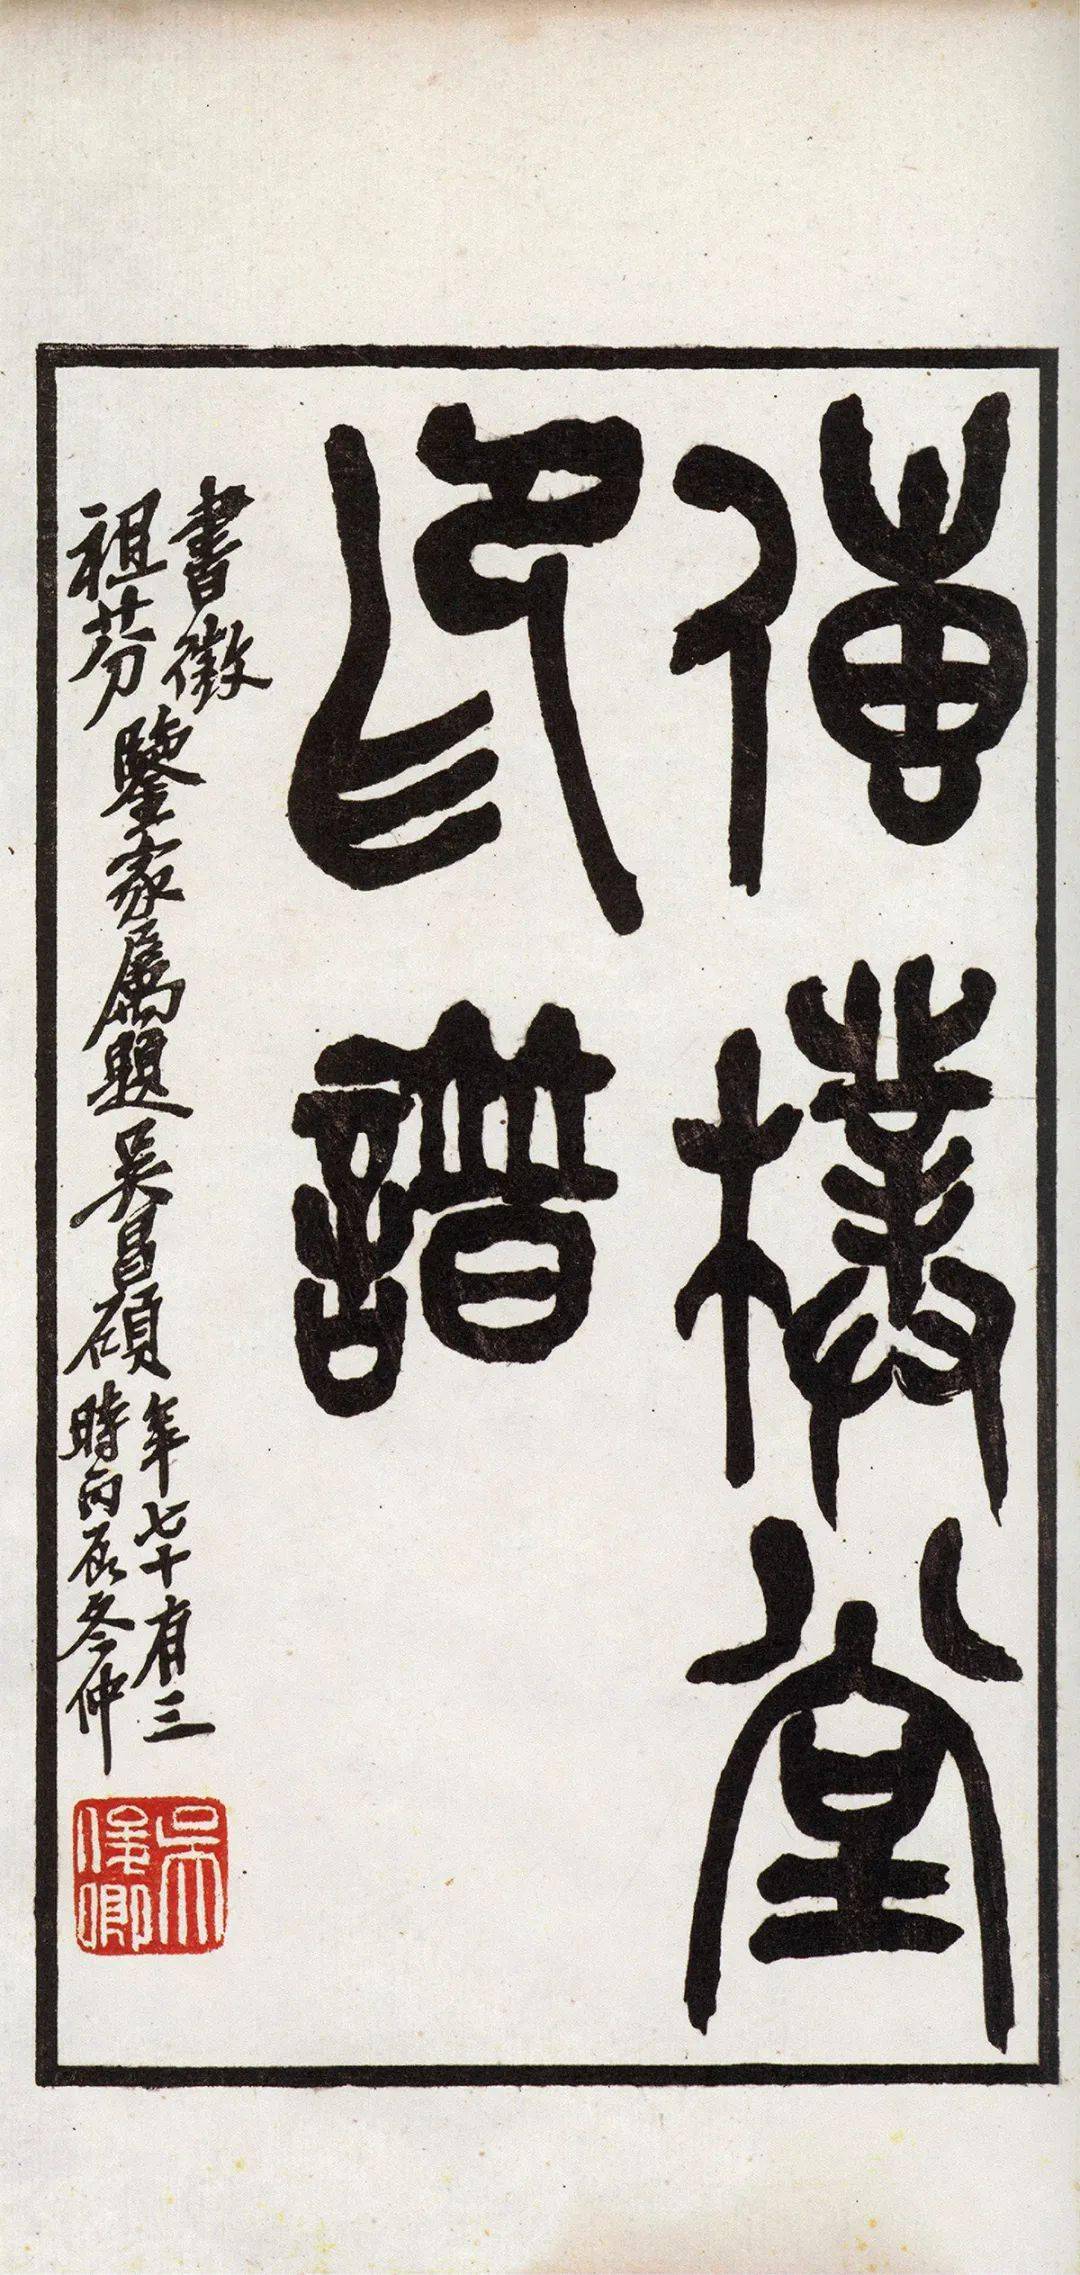 傳樸堂
印譜
書徵
祖芬
鑒家属題吳昌碩
年七十有三
時丙辰冬仲
吳俊卿